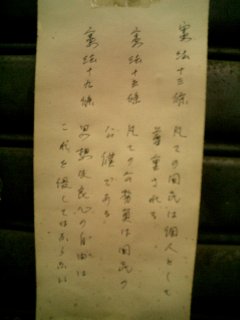 憲法十三條
凡ての国民は個人として
尊重される
憲法十五條
凡ての公務員は国民の
公僕である
憲法十九條
思想及良心の自由は
これを侵してはならない